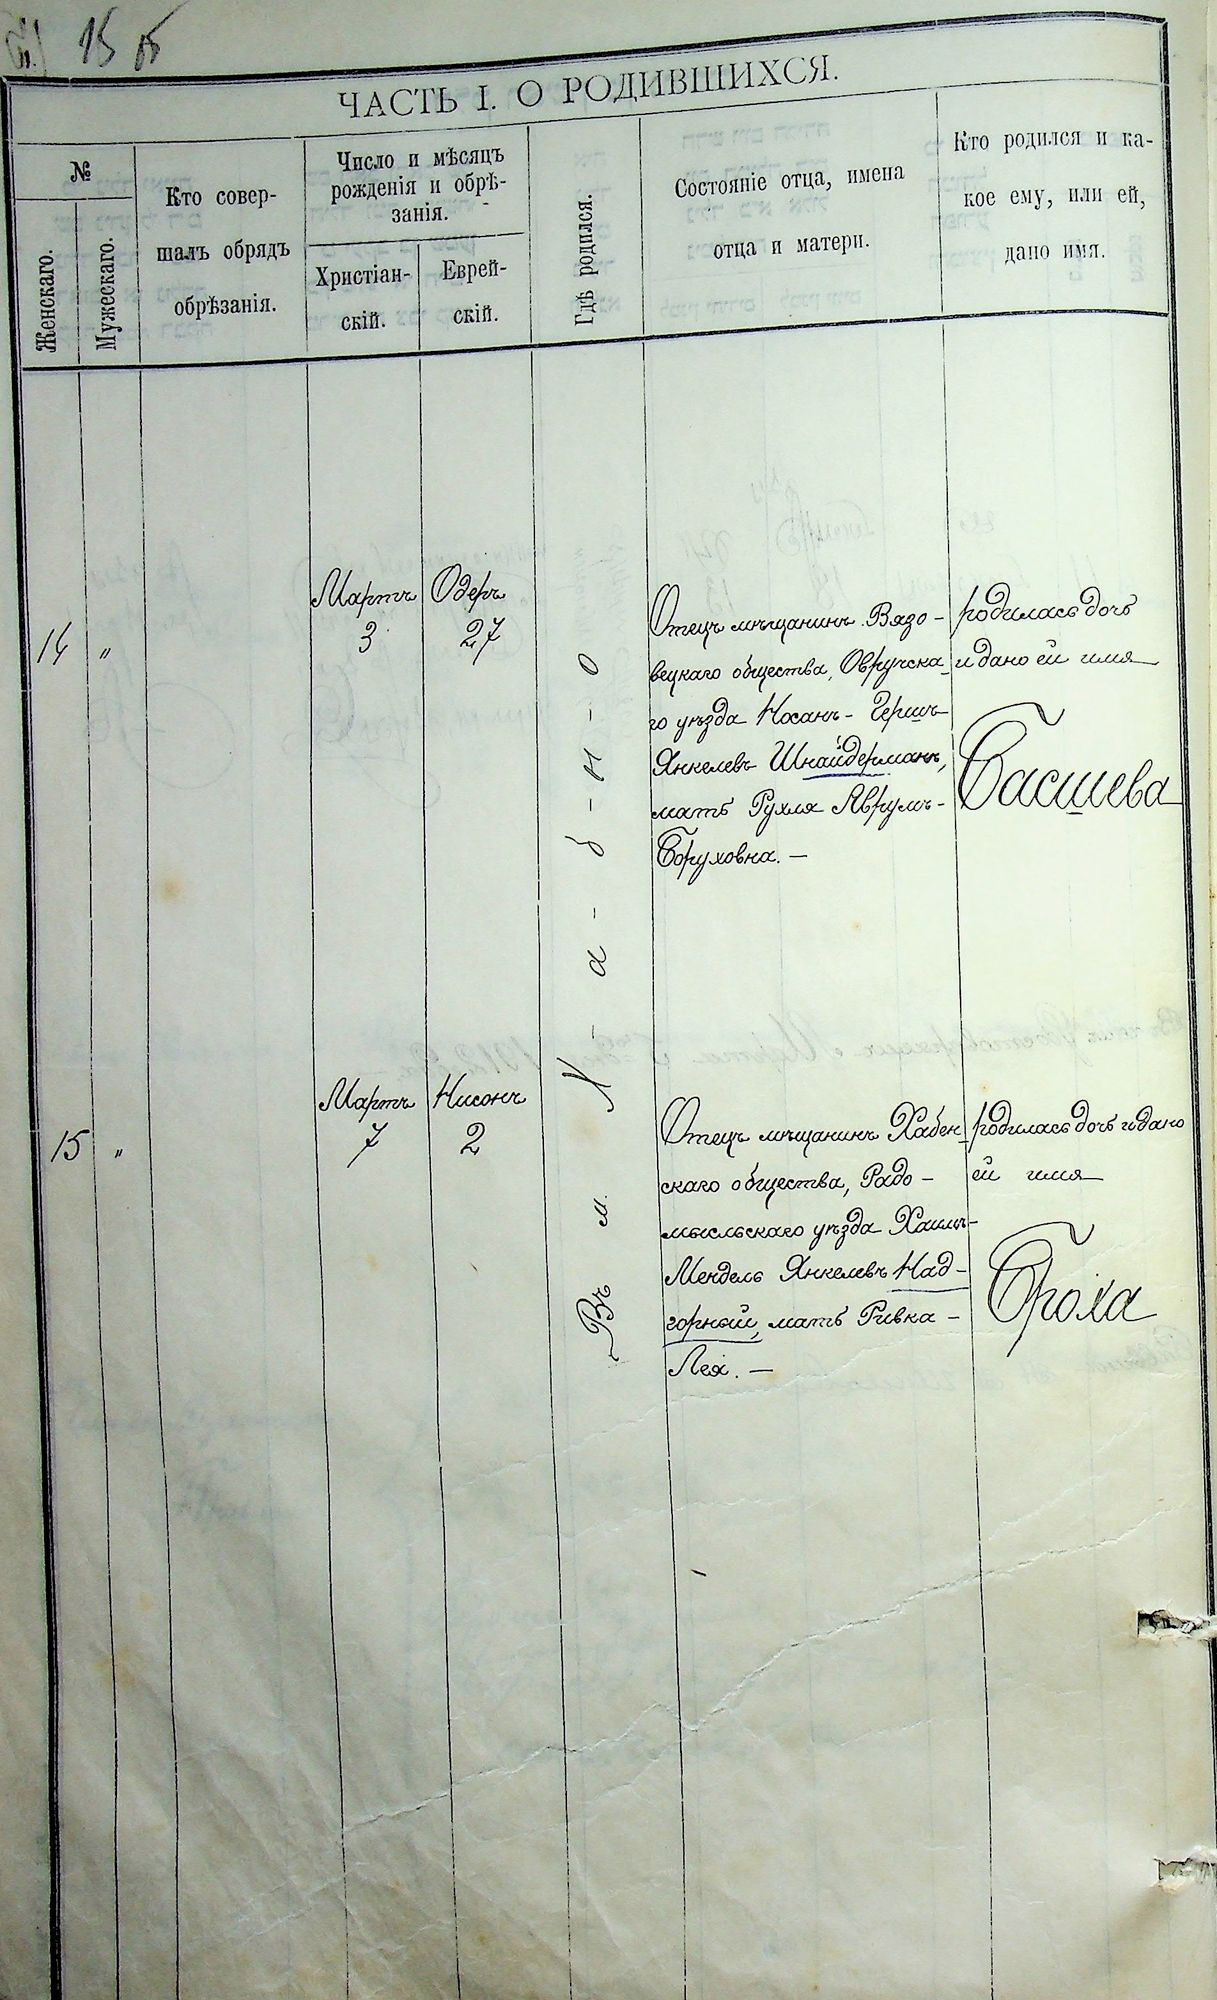 15 б
ЧАСТЬ I. О РОДИВШИХСЯ.
№
Женскаго.
Мужескаго.
Кто совер-
шалъ обрядъ
обрѣзанія.
Число и мѣсяцъ
рожденія и обрѣ-
занія.
Христіан-
скій.
Еврей-
скій.
Гдѣ родился.
Состояніе отца, имена
отца и матери.
Кто родился и ка-
кое ему, или ей,
дано имя.
14 "
Мартъ
3
Одеръ
27
Въ м. Х-а-б-н-о
Отецъ мѣщанинъ Вязо-
вецкаго общества, Овручска
го уѣздаНосанъ-Гершъ
Янкелевъ Шнайдерманъ,
мать Рухля Аврумъ-
Боруховна. —
родилась дочь
и дано ей имя
Басшева
15 "
Мартъ
7
Нисонъ
2
Отецъ мѣщанинъ Хабен
скаго общества, Радо-
мысльскаго уѣзда Хаимъ-
Мендель Янкелевъ Над-
горный, мать Ривка-
Лея. —
родилась дочь и дано
ей имя
Броха